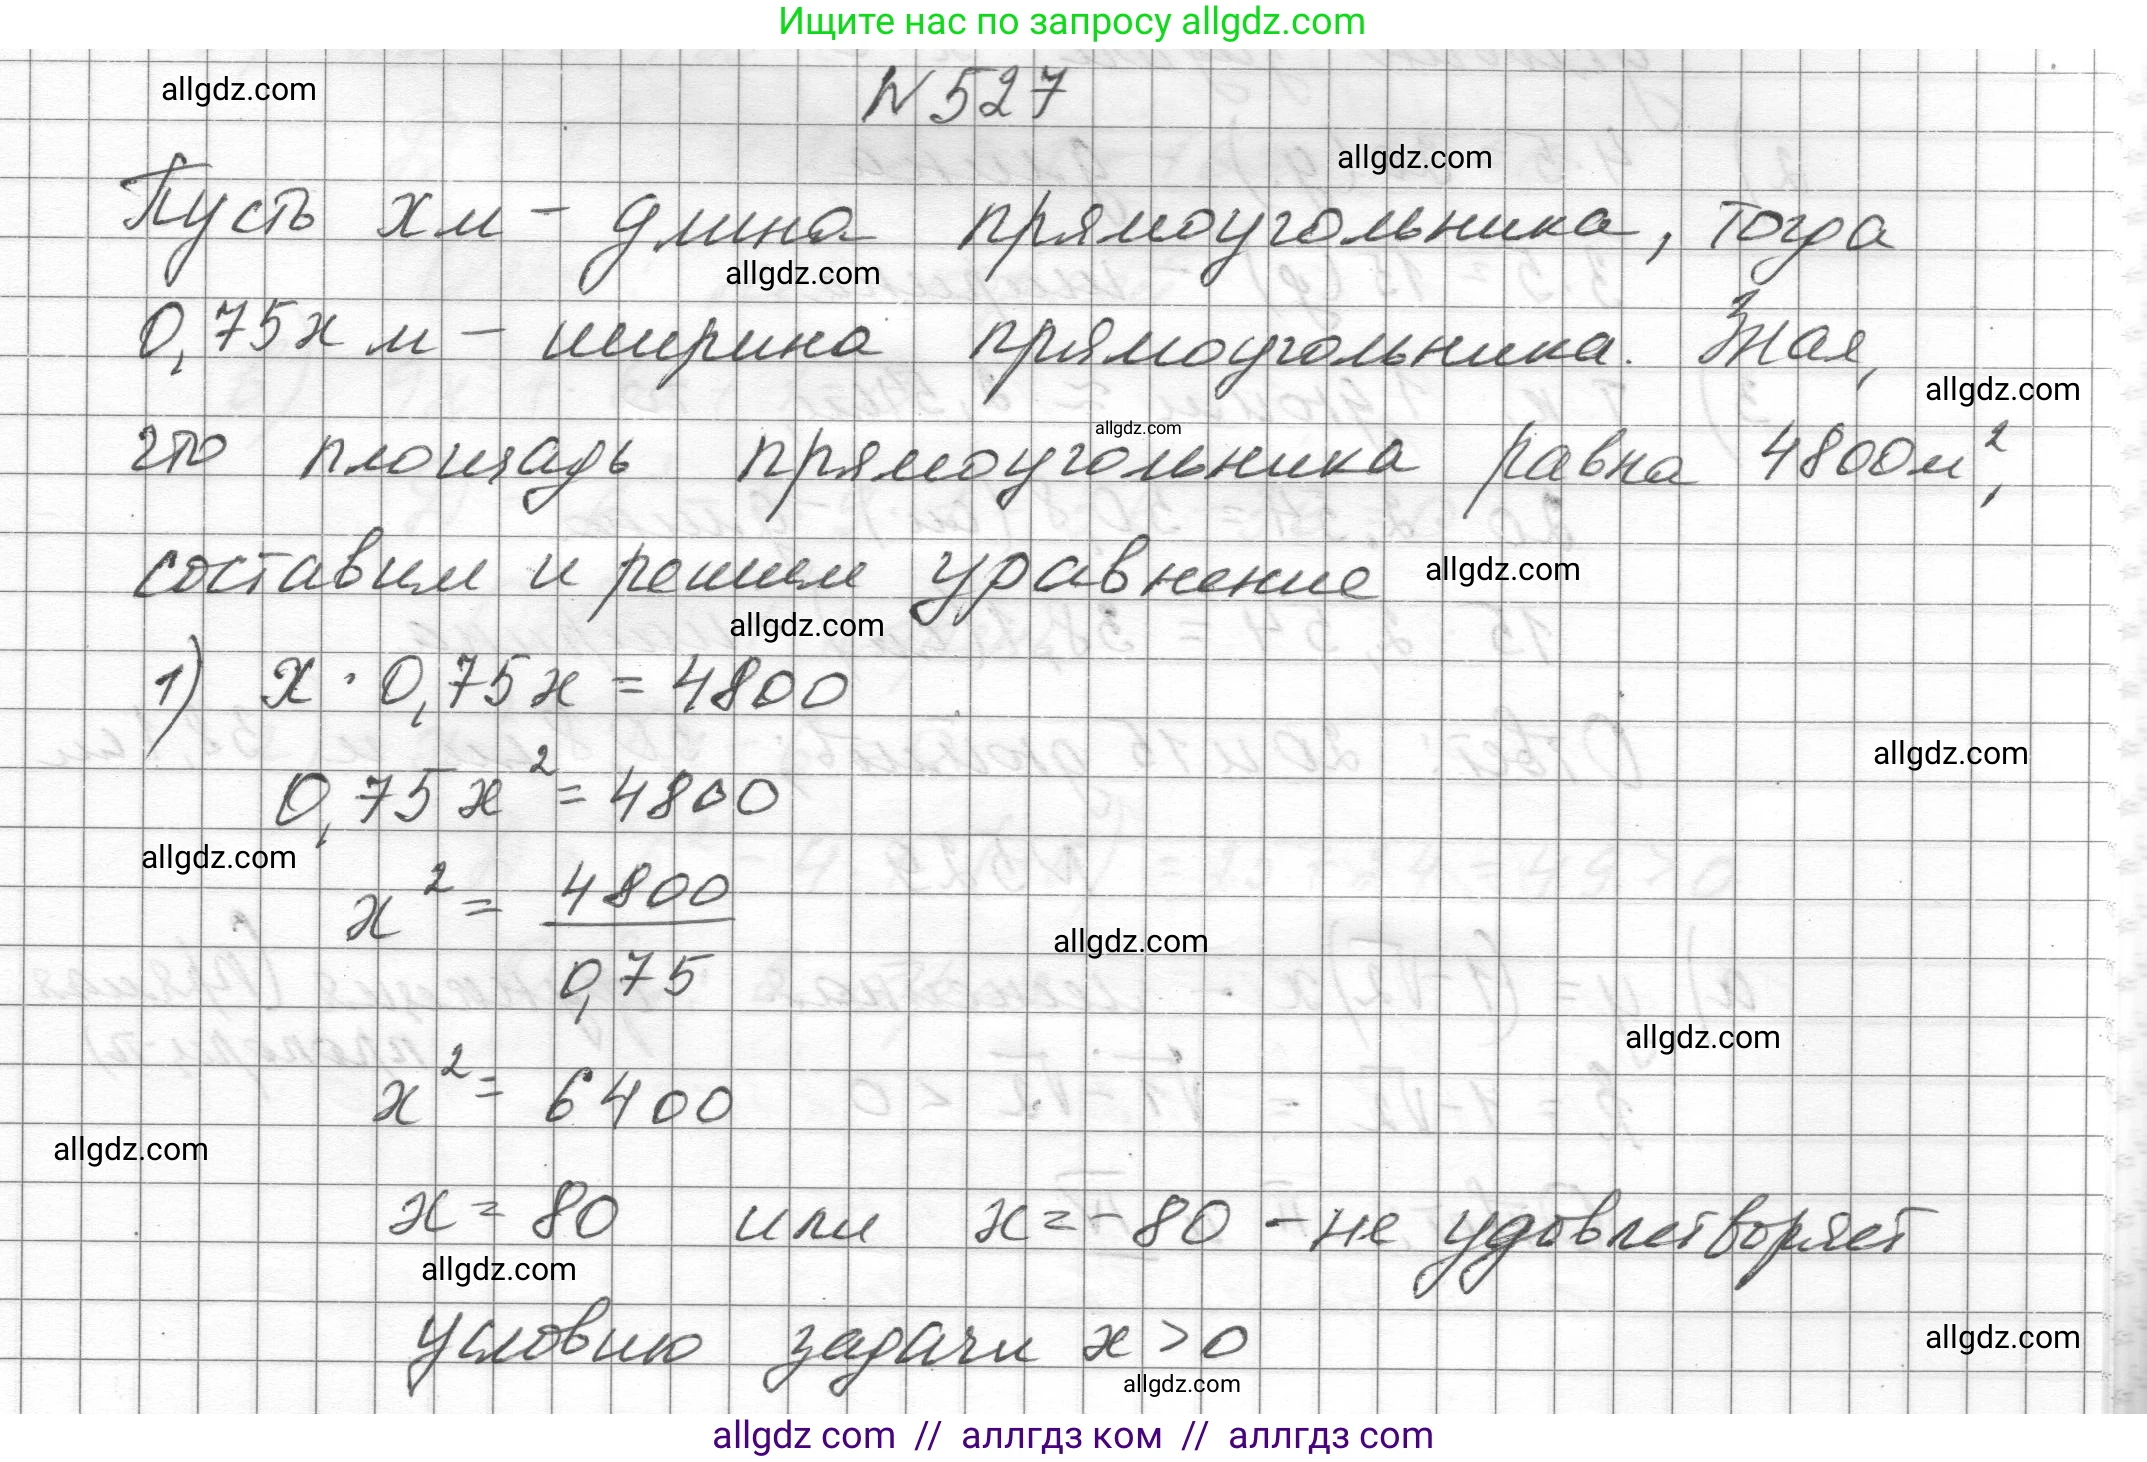 Ищите нас по запросу allgdz.com
allgdz.com
№527
allgdz.com
Пусть хм - длина прямоугольника, тогда
allgdz.com
0,75х м - ширина прямоугольника. Зная,
allgdz.com
allgdz.com
что площадь прямоугольника равна 4800м²,
составим и решим уравнение
allgdz.com
allgdz.com
1) х · 0,75х = 4800
allgdz.com
0,75х² = 4800
allgdz.com
х² = 4800/0,75
allgdz.com
allgdz.com
х² = 6400
allgdz.com
х = 80 или х = -80 - не удовлетворяет
allgdz.com
условию задачи х > 0
allgdz.com
allgdz.com
allgdz com // аллгдз ком // аллгдз com